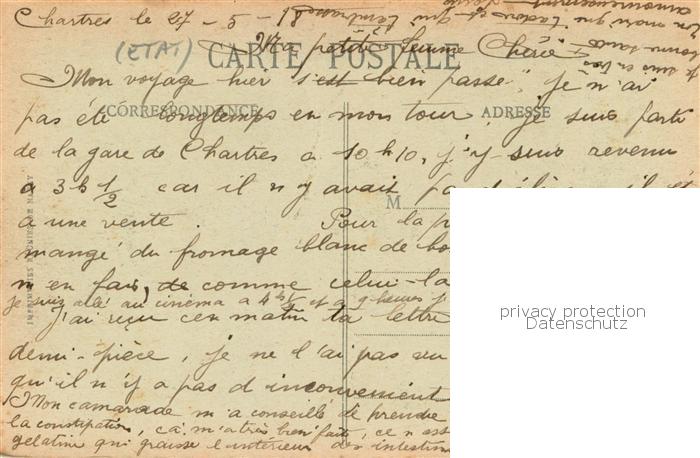 Chartres le 27-5-18
(ETAT) CARTE POSTALE
Ma petite femme Chérie
Mon voyage hier s'est bien passé, je n'ai
CORRESPONDANCE ADRESSE
pas été longtemps en mon tour, je suis parti
de la gare de Chartres a 10 h 10, j'y suis revenu
a 3 h 1/2 car il n'y avait
M
a une vente. Pour la
mangé du fromage blanc de
m en fais, de comme celui-là
je suis allé au cinéma a 4 h 1/2 9 heures
J'ai reçu ce matin ta lettre
demi-pièce, je ne l'ai pas vu
qu'il n'y a pas d inconvenient
Mon camarade m'a conseillé de prendre
la constipation, ça m'a très bien fait, ce n est
gelatine qui graisse l'intérieur des intestins
privacy protection
Datenschutz